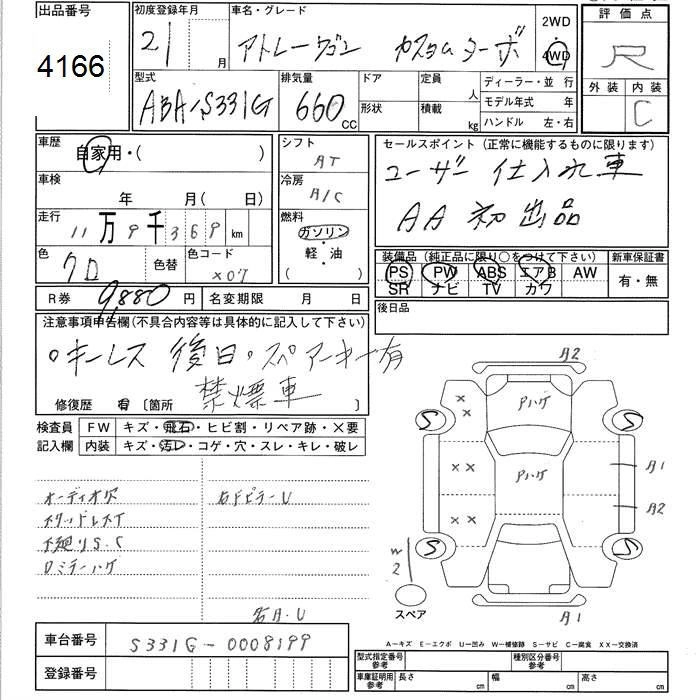 出品番号 初度登録年月 車名・グレード 2WD 評価点
4166 21 月 アトレーワゴン カスタムターボ 4WD R
型式 排気量 ドア 定員 人 ディーラー・並行 外装 内装
ABA-S331G 660 CC 形状 積載 kg モデル年式 年 C
ハンドル 左・右
車歴 自家用・( ) シフト AT セールスポイント(正常に機能するものに限ります)
車検 年 月( 日) 冷房 A/C ユーザー仕入れ車
走行 11万9千369km 燃料 ガソリン・軽油 ( ) AA初出品
色 クロ 色替 色コード X07 装備品(純正品に限り○をつけて下さい) 新車保証書
PS PW ABS エアB AW 有・無
SR ナビ TV カワ
R券 9,880円 名変期限 月 日 後日品
注意事項申告欄(不具合内容等は具体的に記入して下さい)
○キーレス後日・スペアーキー有
禁煙車
修復歴 有 〔箇所 〕
検査員 FW キズ・飛石・ヒビ割・リペア跡・×要
記入欄 内装 キズ・汚レ・コゲ・穴・スレ・キレ・破レ
オーディオ欠 右Fピラー U
下廻りS.C
右A.U
A2
アハゲ
S S
×
×
×× アハゲ A1
×× A2
S S
W2
スペア A1
A-キズ E-エクボ U-凹み W-補修跡 S-サビ C-腐食 XX-交換済
車台番号 S331G-0008199 型式指定番号 参考 種別区分番号 参考
登録番号 車庫証明用 参考 長さ cm 幅 cm 高さ cm